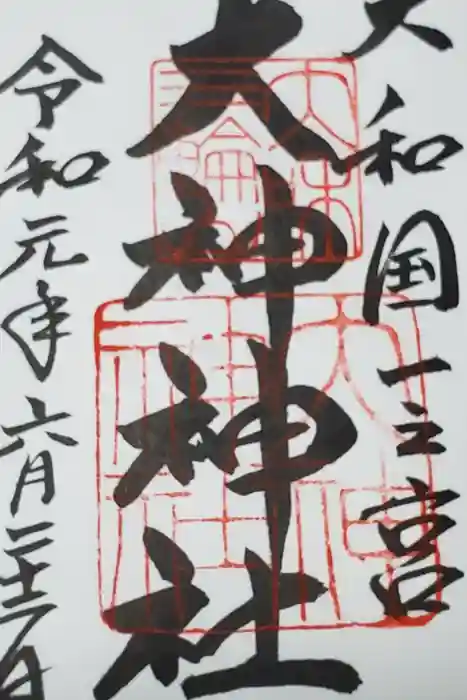 大和国一之宮
大神神社
令和元年六月二十二日